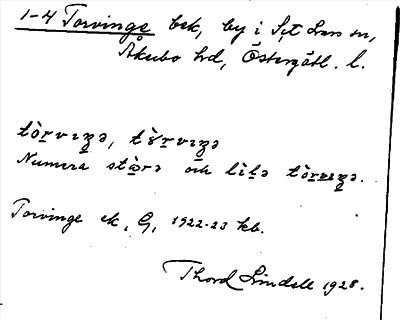 1-4 Torvinge bsk, by i S:t Lars sn,
Åkerbo hd, Östergötl. l.
tòrvıŋə, tɤ̀rvıŋə
Numera stòrə och lìlə tòrvıŋə.
Torvinge ek, G, 1922-23 kb.
Thord Lindell 1928.